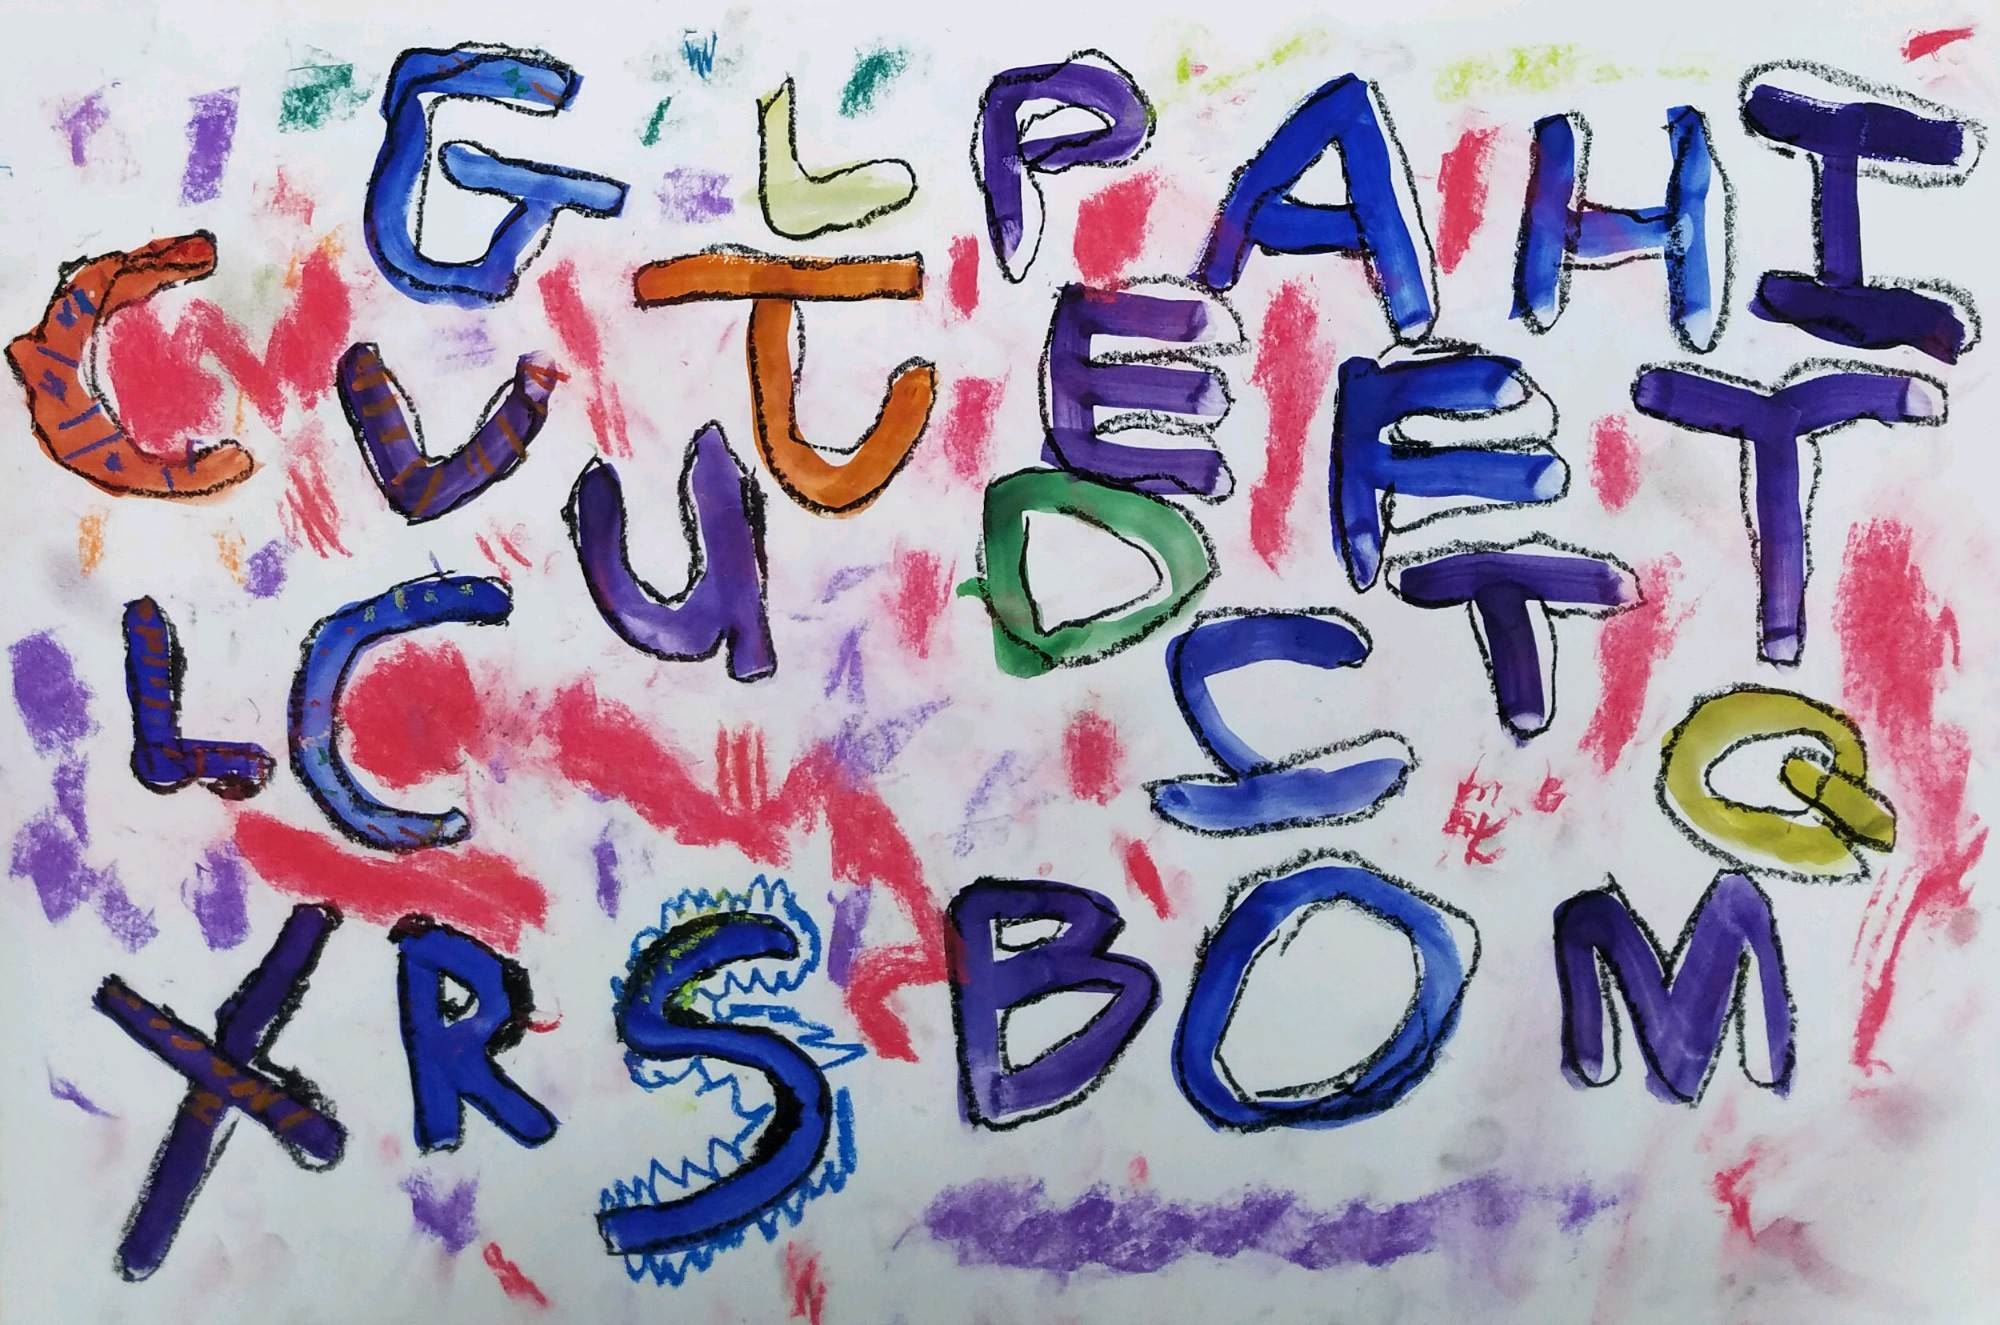 G L P A H I
C V T E F T
L C U D T
S Q
X R S B O M